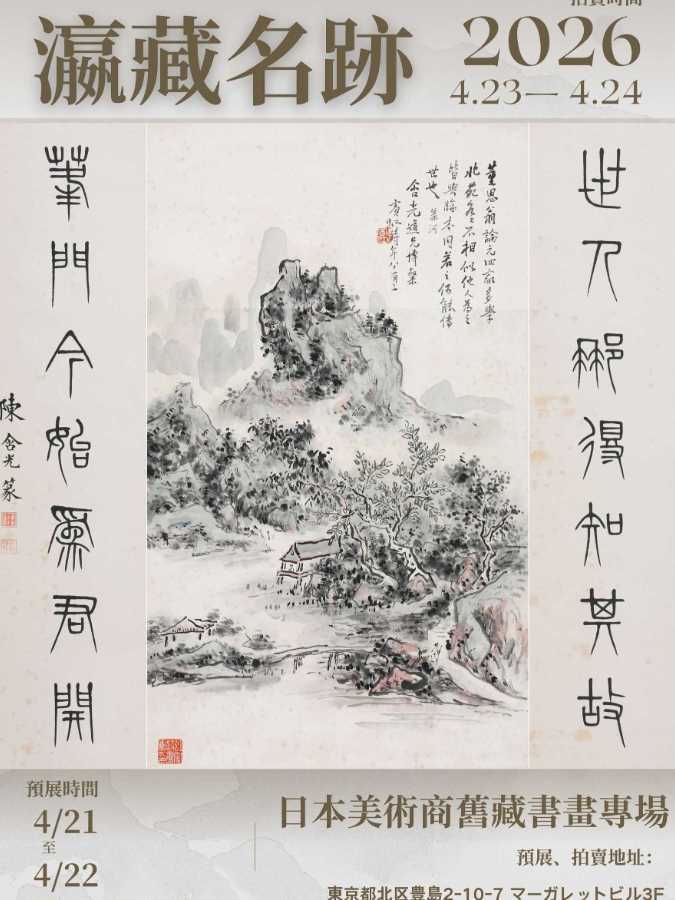 拍賣時間
瀛藏名跡
2026
4.23— 4.24
世人那得知其故
門今始為君開
陳含光篆
董思翁論元四家多學
北苑各各不相似他人為之
皆與臨本同若之何能傳
世也
含光道兄博粲
賓虹時年八十二
預展時間
4/21
至
4/22
日本美術商舊藏書畫專場
預展、拍賣地址：
東京都北区豊島2-10-7 マーガレットビル3F